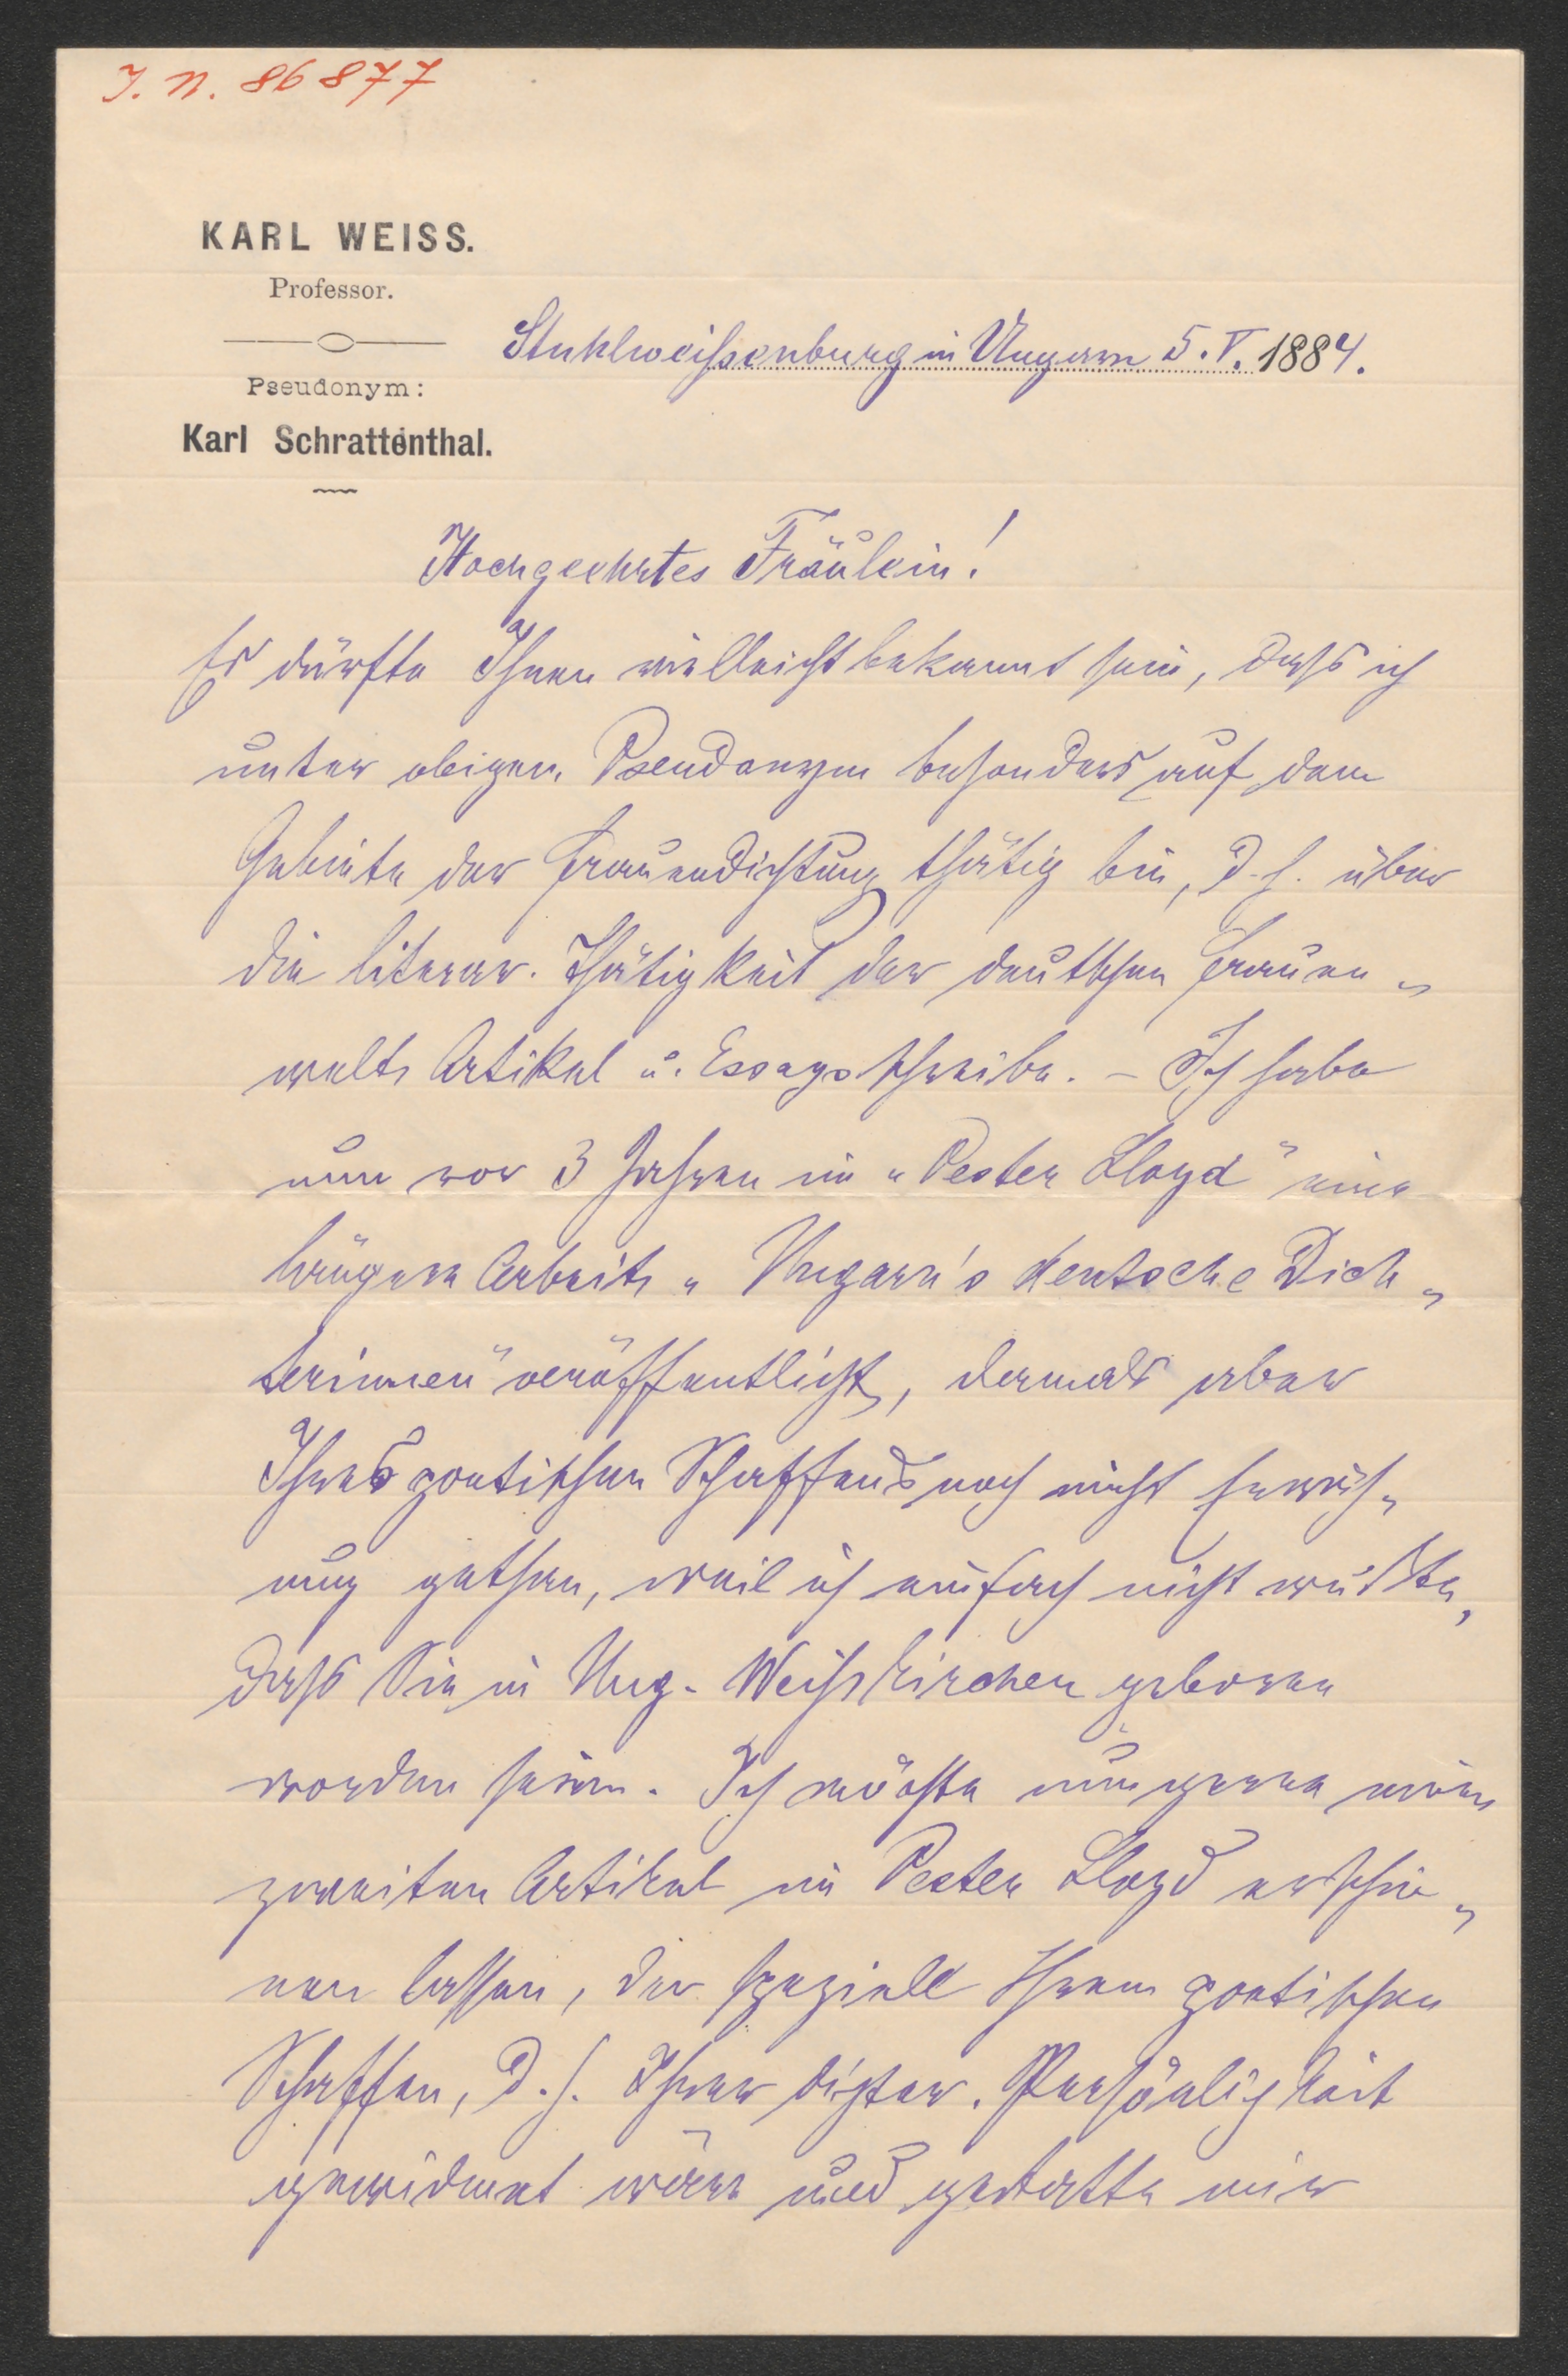 J. N. 86877
KARL WEISS.
Professor.
Stuhlweißenburg in Ungarn 5. V. 1884.
Pseudonym:
Karl Schrattenthal.
Hochgeehrtes Fräulein!
Es dürfte Ihnen vielleicht bekannt sein, daß ich
unter obigem Pseudonym besonders auf dem
Gebiete der Frauendichtung thätig bin, d. h. über
die literar. Thätigkeit der deutschen Frauen„
welt Artikel u. Essays schreibe. – Ich habe
nun vor 3 Jahren im „Pester Lloyd" eine
längere Arbeit „Ungarn's deutsche Dich„
terinnen" veröffentlicht, damals aber
Ihres poetischen Schaffens noch nicht Erwäh„
nung gethan, weil ich einfach nicht wußte,
daß Sie in Ung. Weißkirchen geboren
worden seien. Ich möchte nun gerne einen
zweiten Artikel im Pester Lloyd erschei„
nen lassen, der speziell Ihrem poetischen
Schaffen, d. h. Ihrer dichter. Persönlichkeit
gewidmet wäre und gestatte mir